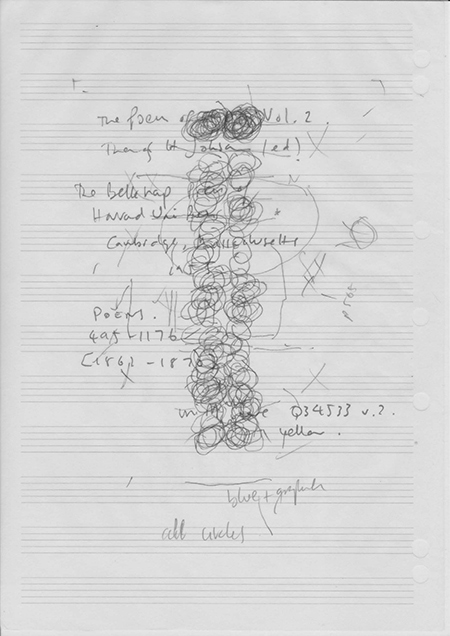 The Poem of Vol. 2.
H Johnson (ed)
The Belknap Press of
Harvard Uni Press
Cambridge, Massachusetts
Poems.
495-1176
[1862 - 1870
Q34533 v.2.
yellow.
blue + graphite
all circles
p 565